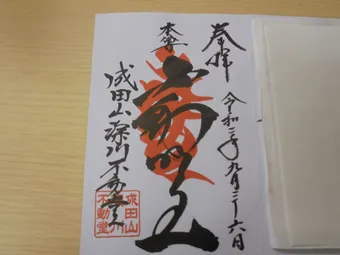 奉拝
令和 年九月二十六日
本尊
不動明王
成田山深川不動堂
成田山
不動堂